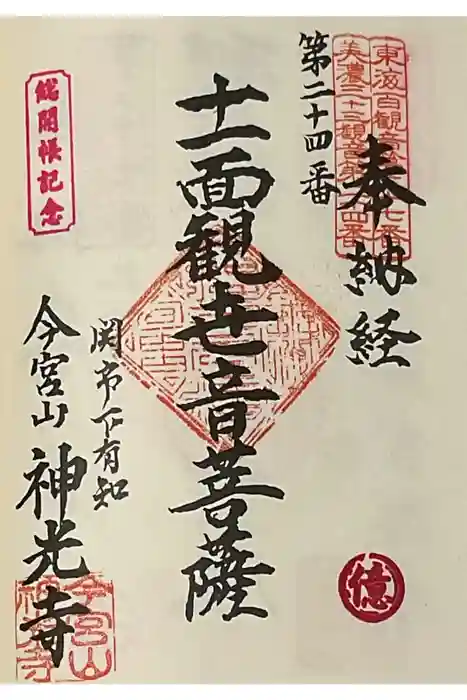 奉納経
東海百観音第五十七番
美濃三十三観音第二十四番
第二十四番
十一面観世音菩薩
関市下有知
今宮山 神光寺
総開帳記念
億
今宮山
神光寺